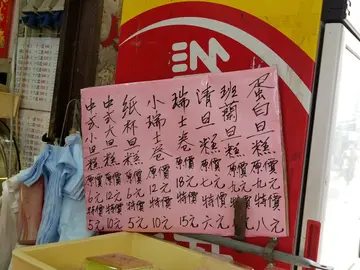 蛋白旦糕原價九元特價八元
班蘭旦糕原價九元特價
清旦糕原價七元特價六元
瑞士卷原價18元特價15元
小瑞士卷原價12元特價10元
纸杯旦糕原價6元特價5元
中式大旦糕原價12元特價10元
中式小旦糕原價6元特價5元